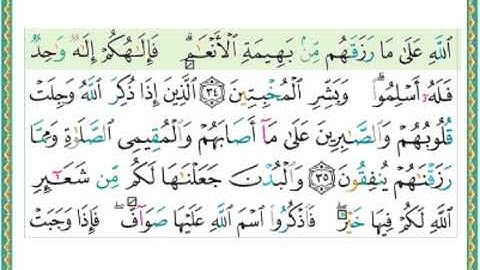 ٱللَّهِ عَلَىٰ مَا رَزَقَهُم مِّنۢ بَهِيمَةِ ٱلْأَنْعَٰمِۗ فَإِلَٰهُكُمْ إِلَٰهٌ وَٰحِدٌ
فَلَهُۥٓ أَسْلِمُوا۟ۗ وَبَشِّرِ ٱلْمُخْبِتِينَ ٣٤ ٱلَّذِينَ إِذَا ذُكِرَ ٱللَّهُ وَجِلَتْ
قُلُوبُهُمْ وَٱلصَّٰبِرِينَ عَلَىٰ مَآ أَصَابَهُمْ وَٱلْمُقِيمِى ٱلصَّلَوٰةِ وَمِمَّا
رَزَقْنَٰهُمْ يُنفِقُونَ ٣٥ وَٱلْبُدْنَ جَعَلْنَٰهَا لَكُم مِّن شَعَٰٓئِرِ
ٱللَّهِ لَكُمْ فِيهَا خَيْرٌۖ فَٱذْكُرُوا۟ ٱسْمَ ٱللَّهِ عَلَيْهَا صَوَآفَّۖ فَإِذَا وَجَبَتْ